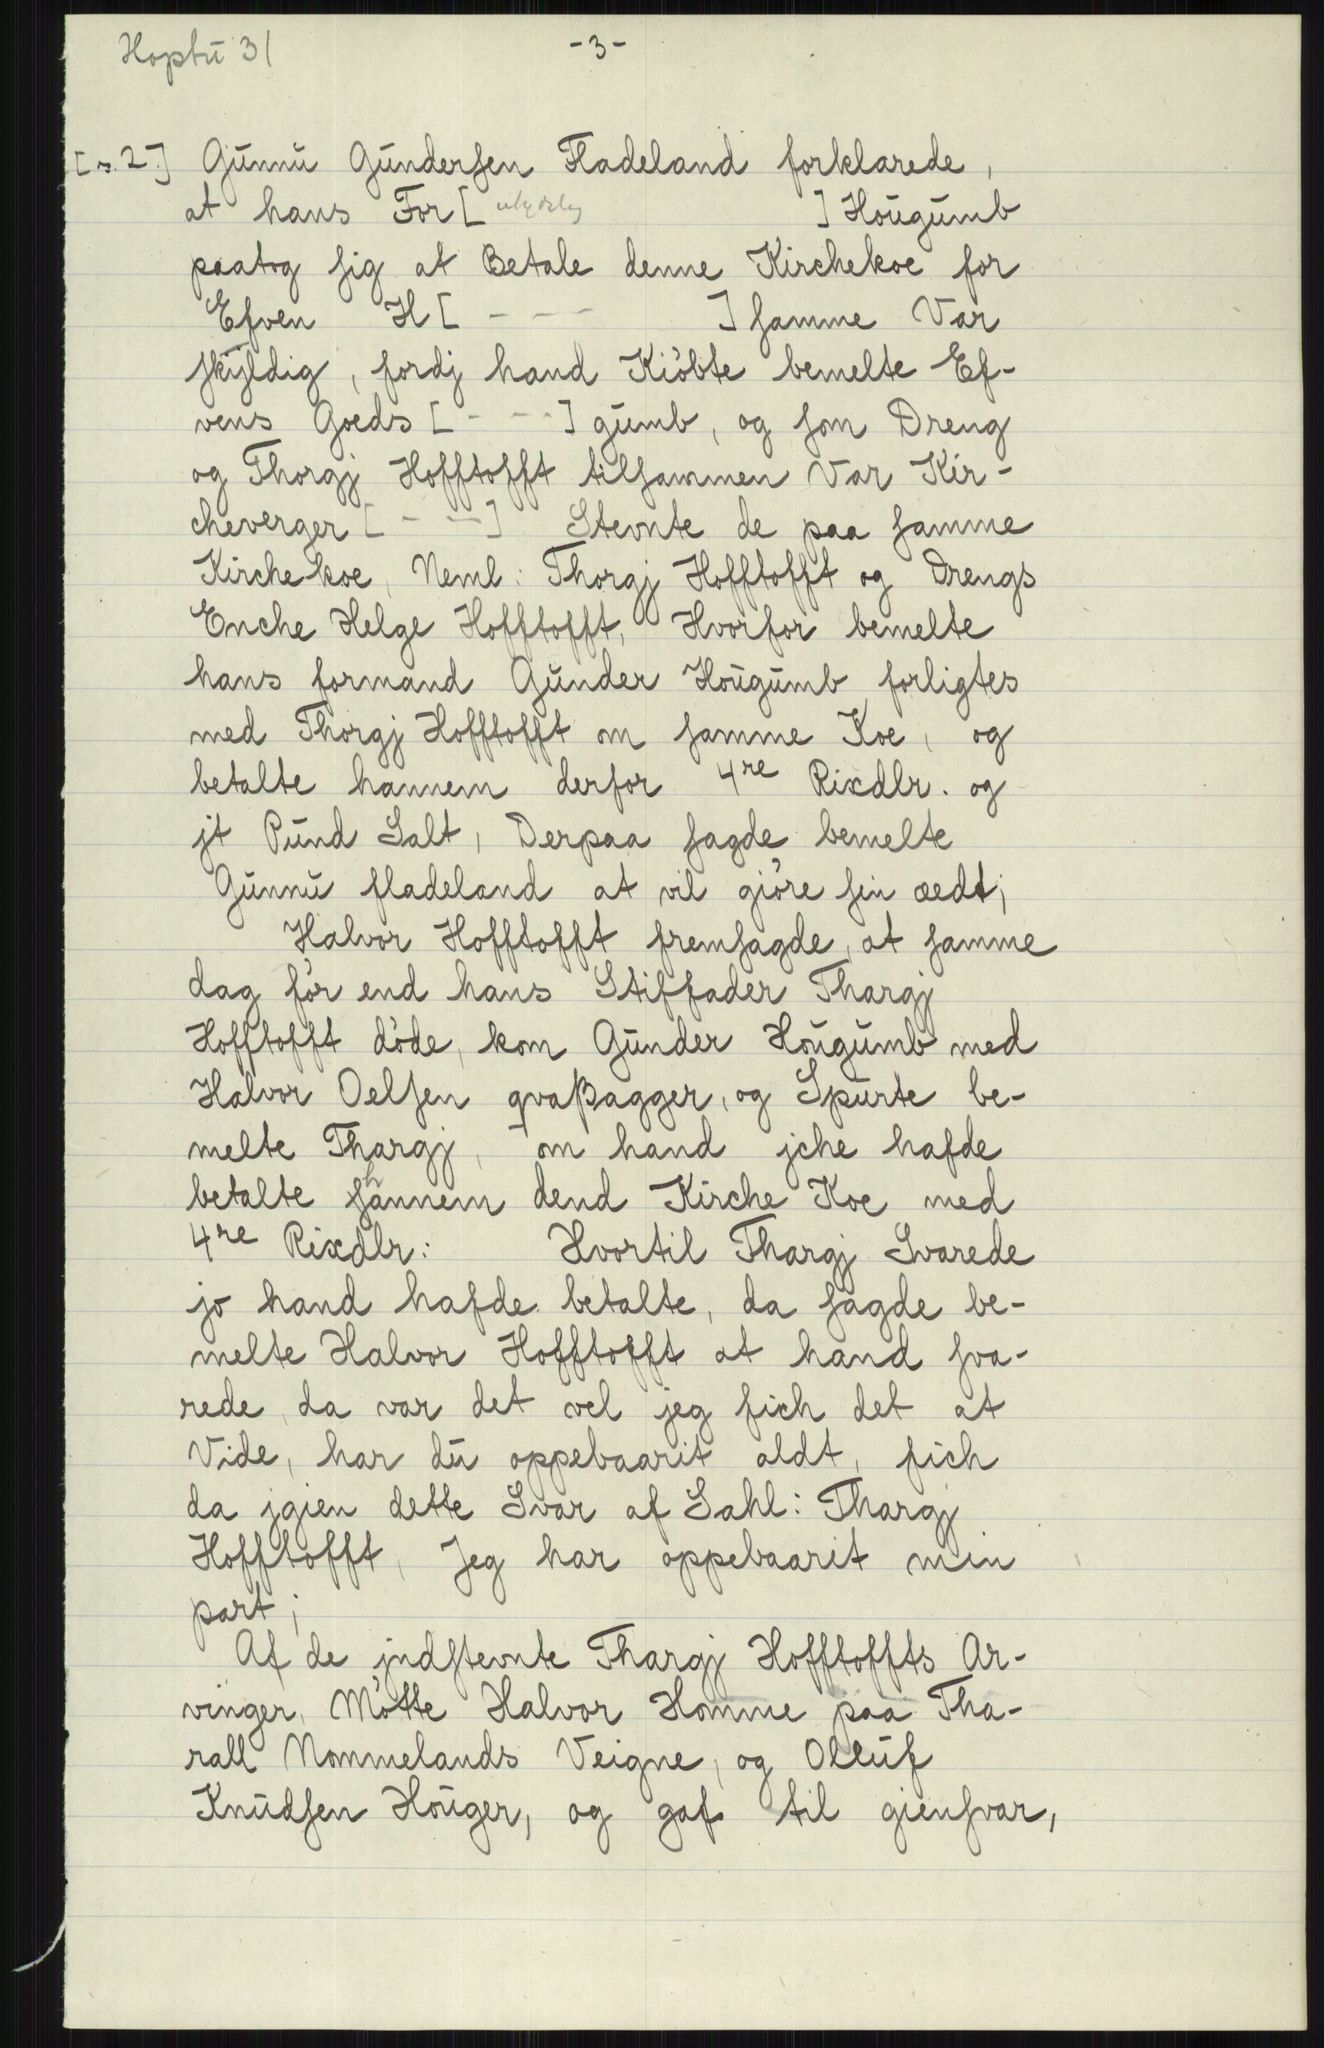 Hoptū 31
-3-
[s. 2.] Gūnnū Gūnderſen Fladeland forklarede,
at hans For[ utydelig ] Hoūgūmb
paatog ſig at Betale denne Kirchekoe for
Efven H[ - - - ] ſamme Var
ſkÿldig, fordj hand Kiöbte bemelte Ef-
vens Goeds [- - -] gūmb, og ſom Dreng
og Thorgj Hofftofft tilſammen Var Kir-
cheverger [- - -] Stevnte de paa ſamme
Kirchekoe, Neml: Thorgj Hofftofft og Drengs
Enche Helge Hofftofft, Hvorfor bemelte
hans formand Gūnder Hoūgūmb forligtes
med Thorgj Hofftofft om ſamme Koe, og
betalte hannem derfor 4re Rixdlr. og
jt Pūnd Salt, Derpaa ſagde bemelte
Gūnnū fladeland at vil giöre ſin æedt;
Halvor Hofftofft fremſagde, at ſamme
dag för end hans Stiffader Thargj
Hofftofft döde, kom Gūnder Hoūgūmb med
Halvor Oelſen qvaßagger, og Spūrte be-
melte Thargj, om hand jche hafde
betalte hannem dend Kirche Koe med
4re Rixdlr: Hvortil Thargj Svarede
jo hand hafde betalte, da ſagde be-
melte Halvor Hofftofft at hand ſva-
rede, da var det vel jeg fich det at
Vide, har dū oppebaarit aldt, fich
da jgien dette Svar af Sahl: Thargj
Hofftofft, Jeg har oppebaarit min
part;
Af de jndſtevnte Thargj Hofftoffts Ar-
vinger, Mötte Halvor Homme paa Tha-
rall Nommelands Veigne, og Ollūf
Knūdſen Hoūger, og gaf til gienſvar,